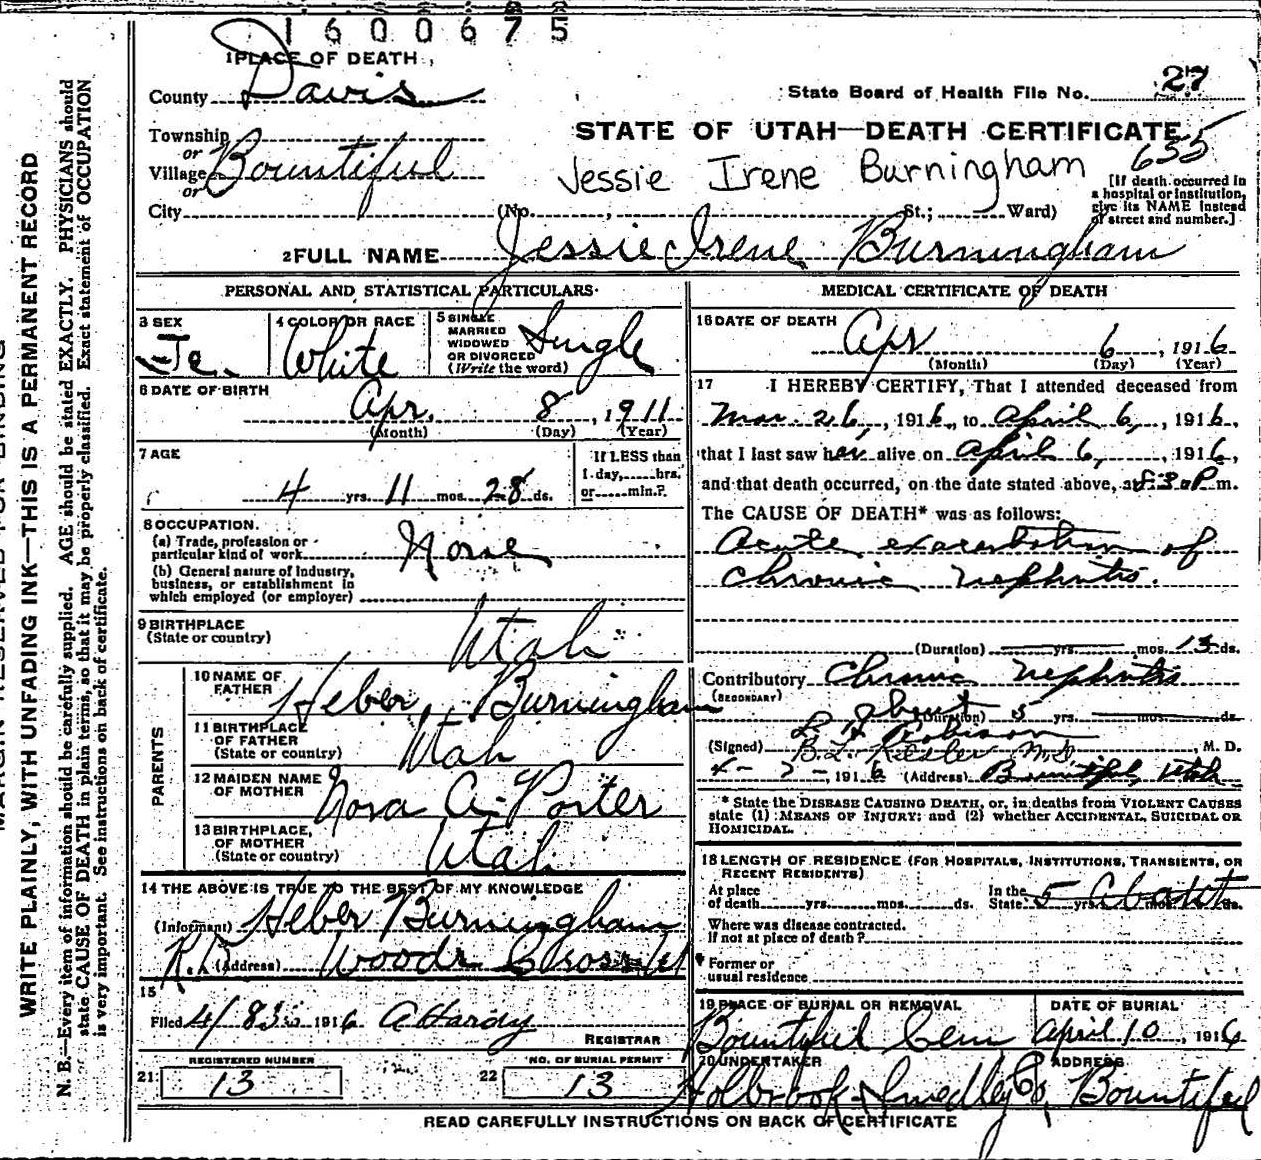 1600675
1 PLACE OF DEATH
County Davis
State Board of Health File No. 27
Township
or
Village Bountiful
or
City
STATE OF UTAH—DEATH CERTIFICATE
635
Jessie Irene Burningham
(No. , St.; Ward)
[If death occurred in
a hospital or institution,
give its NAME instead
of street and number.]
2 FULL NAME Jessie Irene Burningham
PERSONAL AND STATISTICAL PARTICULARS
3 SEX
Fe.
4 COLOR OR RACE
White
5 SINGLE
MARRIED
WIDOWED
OR DIVORCED
(Write the word)
Single
6 DATE OF BIRTH
Apr. 8, 1911
(Month) (Day) (Year)
7 AGE
4 yrs. 11 mos. 28 ds.
If LESS than
1 day, hrs.
or min.?
8 OCCUPATION.
(a) Trade, profession or
particular kind of work None
(b) General nature of industry,
business, or establishment in
which employed (or employer)
9 BIRTHPLACE
(State or country) Utah
PARENTS
10 NAME OF
FATHER Heber Burningham
11 BIRTHPLACE
OF FATHER
(State or country) Utah
12 MAIDEN NAME
OF MOTHER Nora A. Porter
13 BIRTHPLACE,
OF MOTHER
(State or country) Utah
14 THE ABOVE IS TRUE TO THE BEST OF MY KNOWLEDGE
(Informant) Heber Burningham
R.D. (Address) Woods Cross Ut
15
Filed 4/8 1916 A Hardy
REGISTRAR
REGISTERED NUMBER
21 13
NO. OF BURIAL PERMIT
22 13
MEDICAL CERTIFICATE OF DEATH
16 DATE OF DEATH
Apr 6, 1916
(Month) (Day) (Year)
17 I HEREBY CERTIFY, That I attended deceased from
Mar. 26, 1916, to April 6, 1916,
that I last saw her alive on April 6, 1916,
and that death occurred, on the date stated above, at 8:30 P m.
The CAUSE OF DEATH* was as follows:
Acute exacerbation of
Chronic nephritis.
(Duration) yrs. mos. 13 ds.
Contributory Chronic nephritis
(SECONDARY)
about (Duration) 5 yrs. mos. ds.
(Signed) B.L. Kesler M.D., M. D.
4-7-, 1916 (Address) Bountiful, Utah
* State the DISEASE CAUSING DEATH, or, in deaths from VIOLENT CAUSES
state (1) MEANS OF INJURY; and (2) whether ACCIDENTAL, SUICIDAL OR
HOMICIDAL.
18 LENGTH OF RESIDENCE (FOR HOSPITALS, INSTITUTIONS, TRANSIENTS, OR
RECENT RESIDENTS)
At place
of death yrs. mos. ds.
In the
State 5 yrs. About mos. ds.
Where was disease contracted.
If not at place of death?
Former or
usual residence
19 PLACE OF BURIAL OR REMOVAL
Bountiful Cem
DATE OF BURIAL
April 10, 1916
20 UNDERTAKER
Holbrook-Smedley Co,
ADDRESS
Bountiful
READ CAREFULLY INSTRUCTIONS ON BACK OF CERTIFICATE
WRITE PLAINLY, WITH UNFADING INK—THIS IS A PERMANENT RECORD
N. B.—Every item of information should be carefully supplied. AGE should be stated EXACTLY. PHYSICIANS should
state CAUSE OF DEATH in plain terms, so that it may be properly classified. Exact statement of OCCUPATION
is very important. See instructions on back of certificate.